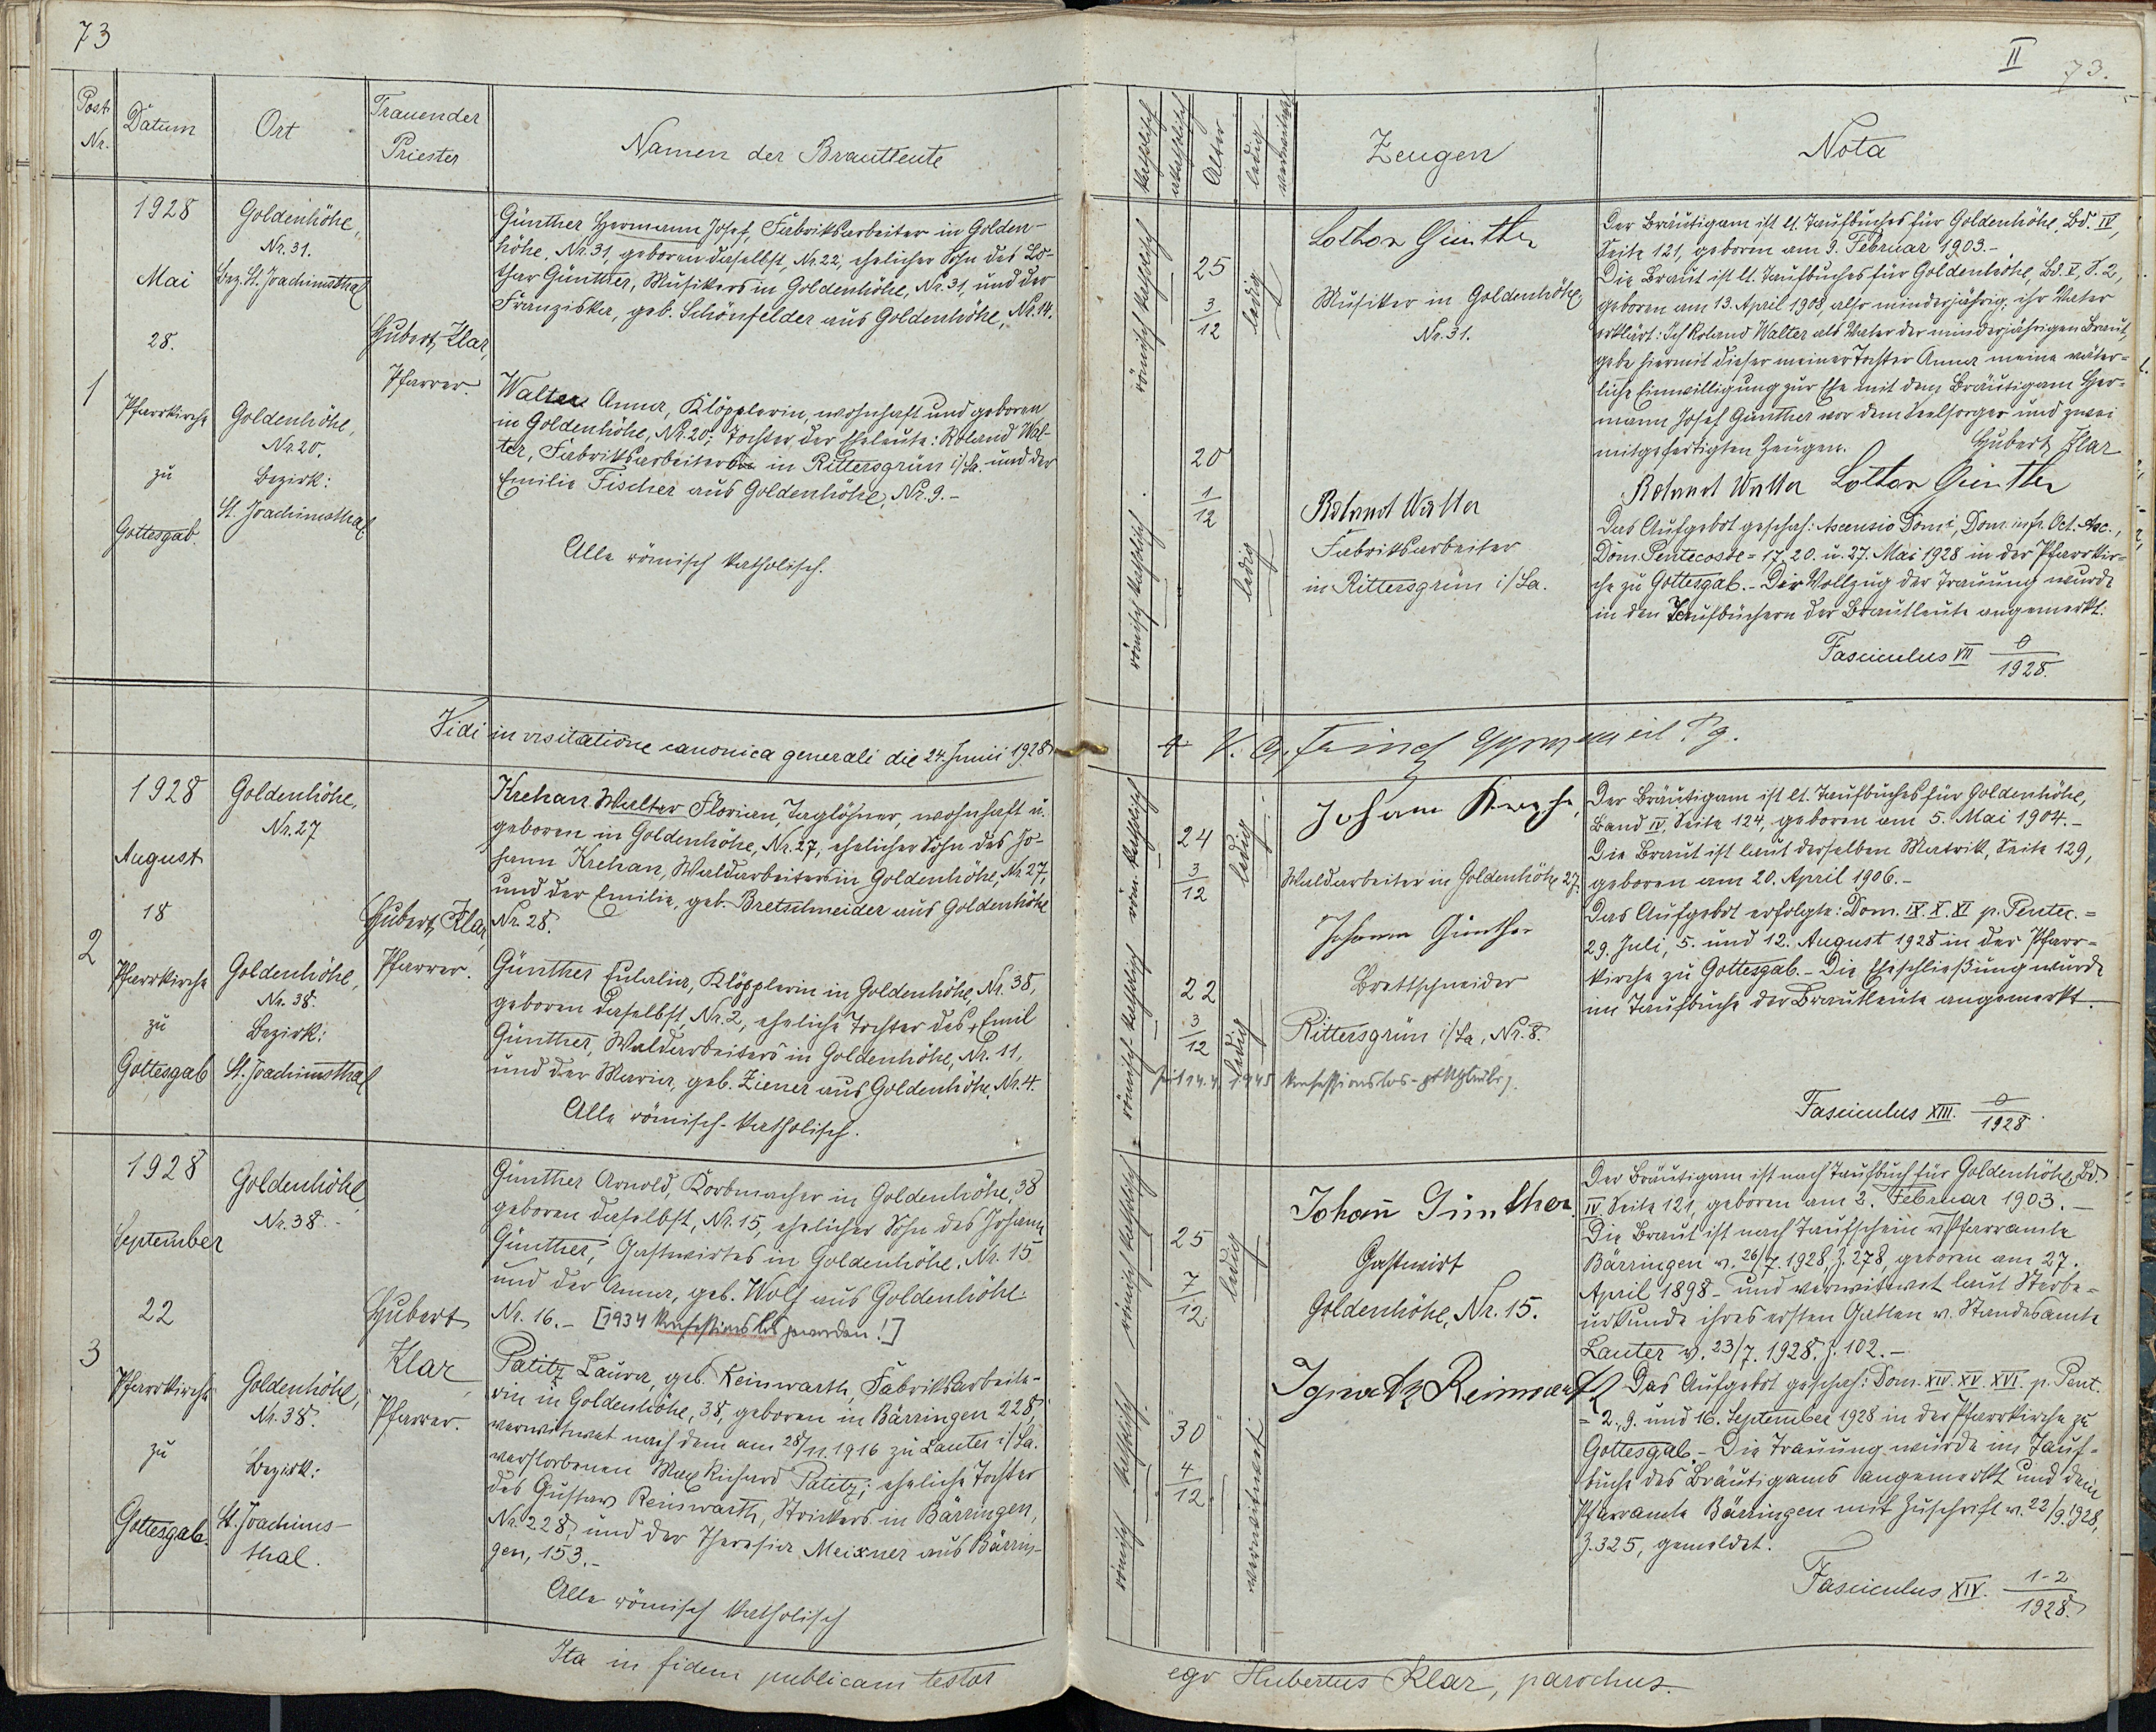 73
Post Nr.
Datum
Ort
Trauender Priester
Namen der Brautleute
1
1928
Mai
28.
Pfarrkirche
zu
Gottesgab.
Goldenhöhe,
Nr. 31.
Bez. St. Joachimsthal
Goldenhöhe,
Nr. 20.
Bezirk:
St. Joachimsthal
Hubert Klar,
Pfarrer.
Günther Hermann Josef, Fabriksarbeiter in Golden-
höhe, Nr. 31, geboren daselbst, Nr. 22, ehelicher Sohn des Lo-
thar Günther, Musikers in Goldenhöhe, Nr. 31, und der
Franziska, geb. Schönfelder aus Goldenhöhe, Nr. 14.
Walter Anna, Klöpplerin, wohnhaft und geboren
in Goldenhöhe, Nr. 20; Tochter der Eheleute: Roland Wal-
ter, Fabriksarbeiter in Rittersgrün i/Sa. und der
Emilie Fischer aus Goldenhöhe, Nr. 9.-
Alle römisch katholisch.
Vidi in visitatione canonica generali die 24. Junii 1928
2
1928
August
18
Pfarrkirche
zu
Gottesgab
Goldenhöhe,
Nr. 27
Goldenhöhe,
Nr. 38.
Bezirk:
St. Joachimsthal
Hubert Klar,
Pfarrer.
Krehan Walter Florian, Taglöhner, wohnhaft u.
geboren in Goldenhöhe, Nr. 27, ehelicher Sohn des Jo-
hann Krehan, Waldarbeiters in Goldenhöhe, Nr. 27,
und der Emilie, geb. Bretschneider aus Goldenhöhe
Nr. 28.
Günther Eulalia, Klöpplerin in Goldenhöhe, Nr. 38,
geboren daselbst, Nr. 2, eheliche Tochter des + Emil
Günther, Waldarbeiters in Goldenhöhe, Nr. 11,
und der Maria, geb. Ziener aus Goldenhöhe, Nr. 4.
Alle römisch-katholisch.
3
1928
September
22
Pfarrkirche
zu
Gottesgab.
Goldenhöhe
Nr. 38.-
Goldenhöhe,
Nr. 38.
Bezirk:
St. Joachims-
thal.
Hubert
Klar,
Pfarrer.
Günther Arnold, Korbmacher in Goldenhöhe, 38
geboren daselbst, Nr. 15, ehelicher Sohn des Johann
Günther, Gastwirtes in Goldenhöhe, Nr. 15
und der Anna, geb. Wolf aus Goldenhöhe
Nr. 16.- [1934 konfessionslos geworden!]
Patitz Laura, geb. Reinwarth, Fabriksarbeite-
rin in Goldenhöhe, 38, geboren in Bärringen 228,
verwitwet nach dem am 28/11. 1916 zu Lauter i/Sa.
verstorbenen Max Richard Patitz; eheliche Tochter
des Gustav Reinwarth, Strickers in Bärringen,
Nr. 228, und der Theresia Meixner aus Bärrin-
gen, 153.-
Alle römisch katholisch
Ita in fidem publicam testor
II
73.
katholisch
Alter
ledig
verwitwet
Zeugen
Nota
römisch katholisch
25 3/12
ledig
römisch katholisch
20 1/12
ledig
Lothar Günther
Musiker in Goldenhöhe,
Nr. 31.
Roland Walter
Fabriksarbeiter
in Rittersgrün i/Sa.
Der Bräutigam ist lt. Taufbuches für Goldenhöhe, Bd. IV,
Seite 121, geboren am 9. Februar 1903.-
Die Braut ist lt. Taufbuches für Goldenhöhe, Bd. V, S. 2,
geboren am 13. April 1908, also minderjährig; ihr Vater
erklärt: Ich Roland Walter als Vater der minderjährigen Braut,
gebe hiermit dieser meiner Tochter Anna meine väter-
liche Einwilligung zur Ehe mit dem Bräutigam Her-
mann Josef Günther vor dem Seelsorger und zwei
mitgefertigten Zeugen. Hubert Klar
Roland Walter Lothar Günther
Das Aufgebot geschah: Ascensio Domi, Dom. infr. Oct. Asc.,
Dom. Pentecoste = 17. 20. u. 27. Mai 1928 in der Pfarrkir-
che zu Gottesgab.- Der Vollzug der Trauung wurde
in den Taufbüchern der Brautleute angemerkt:
Fasciculus VII 0/1928.
röm. katholisch
24 3/12
ledig
römisch-katholisch
22 3/12
ledig
Johann
Waldarbeiter in Goldenhöhe 27.
Johann Günther
Brettschneider
Rittersgrün i/Sa, Nr. 8.
1945 konfessionslos
Der Bräutigam ist lt. Taufbuches für Goldenhöhe,
Band IV, Seite 124, geboren am 5. Mai 1904.-
Die Braut ist laut derselben Matrik, Seite 129,
geboren am 20. April 1906.-
Das Aufgebot erfolgte: Dom. IX. X. XI p. Pentec. =
29. Juli, 5. und 12. August 1928 in der Pfarr-
kirche zu Gottesgab.- Die Eheschließung wurde
im Taufbuche der Brautleute angemerkt.
Fasciculus XIII. 0/1928.
römisch katholisch
25 7/12
ledig
römisch katholisch
30 4/12
verwitwet
Johann Günther
Gastwirt
Goldenhöhe, Nr. 15.
Ignatz
Der Bräutigam ist nach Taufbuch für Goldenhöhe, Bd.
IV Seite 121, geboren am 2. Februar 1903.-
Die Braut ist nach Taufschein v. Pfarramte
Bärringen v. 26/7. 1928, Z. 278, geboren am 27.
April 1898 - und verwitwet laut Sterbe-
urkunde ihres ersten Gatten v. Standesamte
Lauter v. 23/7. 1928. Z. 102.-
Das Aufgebot geschah: Dom. XIV. XV. XVI. p. Pent.
= 2., 9. und 16. September 1928 in der Pfarrkirche zu
Gottesgab.- Die Trauung wurde im Tauf-
buche des Bräutigams angemerkt und dem
Pfarramte Bärringen mit Zuschrift v. 22/9. 1928,
Z. 325, gemeldet.
Fasciculus XIV. 1-2/1928.
ego Hubertus Klar, parochus.